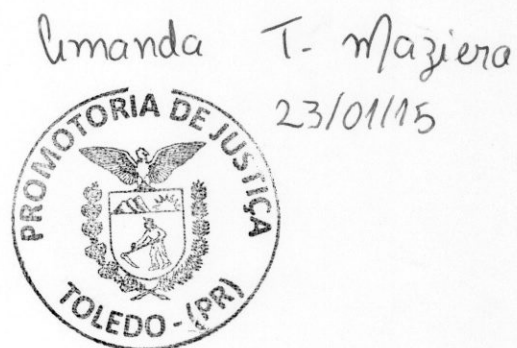 Amanda T. Maziera
23/01/15
PROMOTORIA DE JUSTIÇA
TOLEDO - (PR)